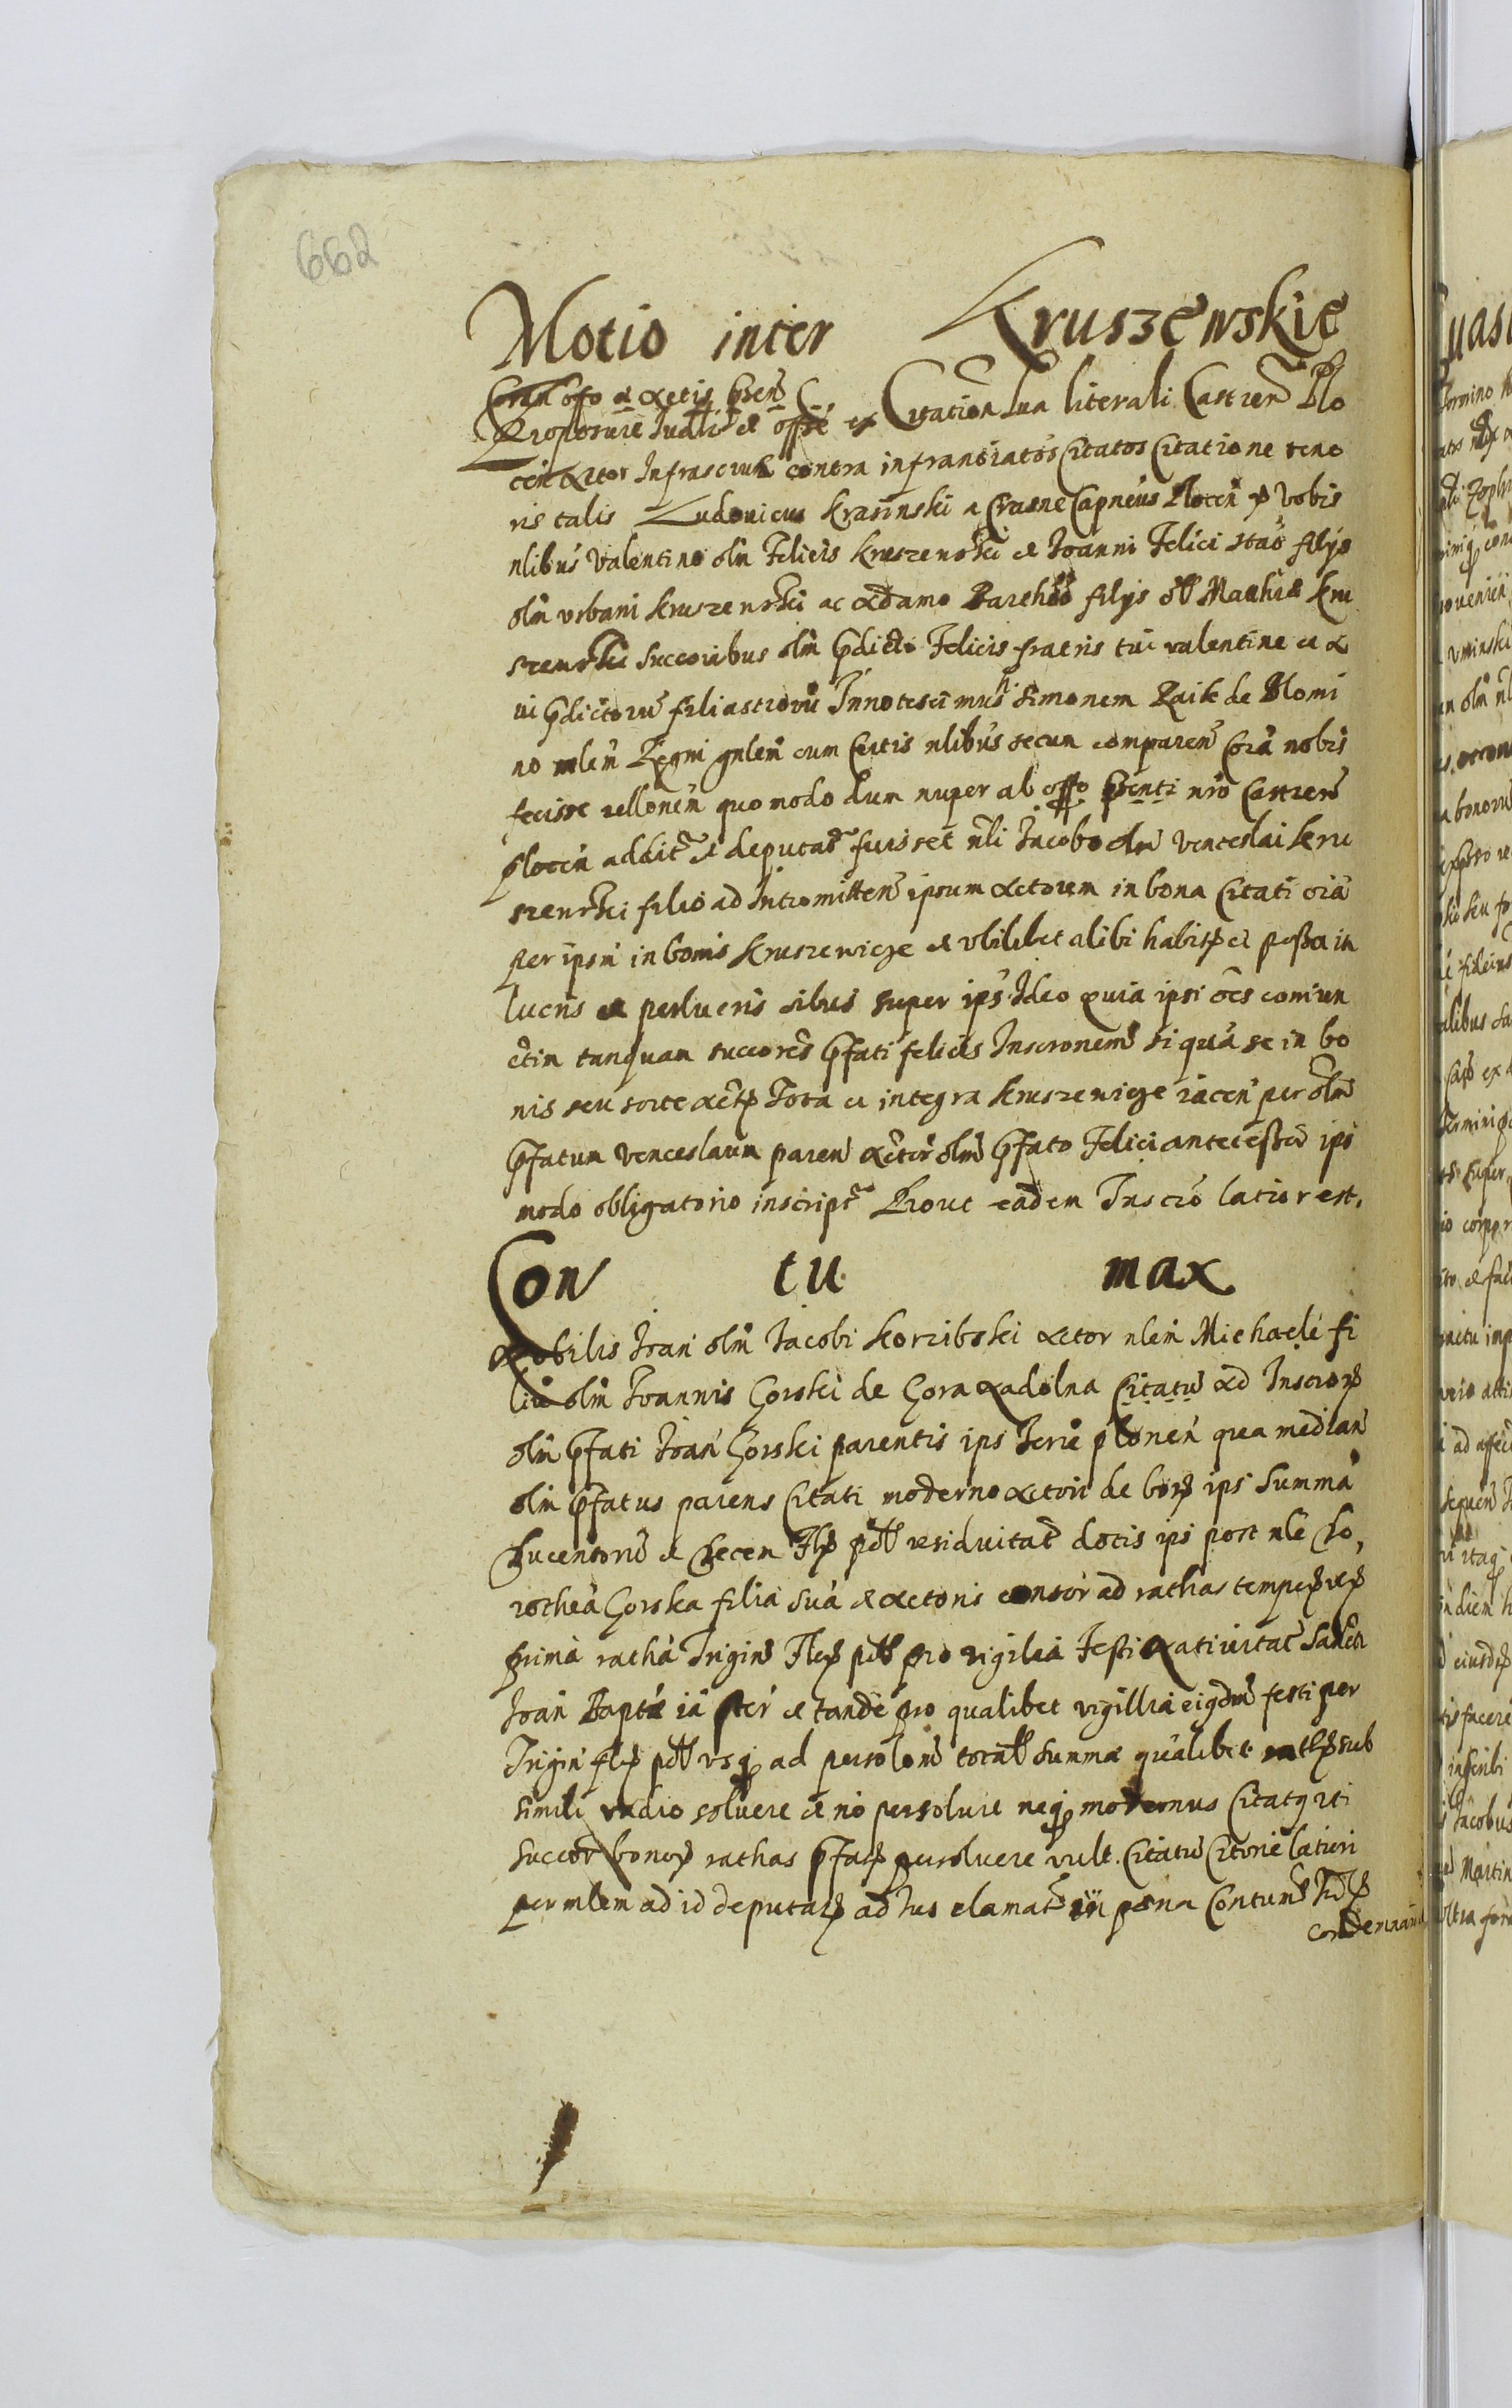 662
Motio inter Kruszewskie
Coram offo et actis Prēn
Proposuit Judlr et offē ex Citation sua literali Castren Plo
cen Actor Infrascrip contra infranoiatos Citatos Citatione teno
ris talis Ludovicus Krasinski a Crasne Capneus Plocen vobis
nlibus Valentino olim Felicis Kruszewski et Joanni Felici stao filijs
olim Urbani Kruszewski ac Adamo filijs olim Mathie Kru
szewski Succoribus olim pdicti Felicis fratris tui valentine et
ui pdictoru filiastroru Innotescimus Simonem Raik de Slomi
no mlem Regni gnlem cum Certis nlibus secum comparen Cora nobis
fecisse rellonem quomodo dum nuper ab offo psenti nro Castren
plocen addit et deputat fuisset nli Jacobo olim Venceslai Kru
szewski filio ad Intromitten ipsum actorem in bona Citati oia
per ipsm in bonis Kruszewicze et ubilibet alibi habit et possa in
lucris et perlucris oibus super ips Ideo quia ipsi oes coniun
ctim tanquam succores pfati felicis Inscronem si qua se in bo
nis seu sorte Tota et integra Kruszewicze iacen per olim
pfatum Venceslaum paren actor olim pfato Felici antecessa ips
modo obligatorio inscript Prout eadem Inscro latior est.
Con tu max
Nobilis Joan olim Jacobi Korzibski Actor nlem Michaele fi
liu olim Joannis Gorski de Gora Nadolna Citatu ad Inscrop
olim pfati Joan Gorski parentis ips Terre plonen qua median
olim pfatus parens Citati moderno actori de bonis ips Summa
Ducentoru et Decem Flr pol residuitat dotis ipi post nle Do,
rothea Gorska filia sua et actoris consor ad rathas
prima ratha Trigint Flr pol pro vigilia Festi Nativitat Sancti
Joan Bapte et tande pro qualibet vigillia festi per
Trigin flr pol usq ad persolom total Summæ qualibet rath sub
simili vadio solvere et no persolvit neq modernus Citatq uti
Succor bonor rathas pfat persolvere vult. Citatu Citorie latiori
per mlem ad id deputat ad Jus clamat in pœna Contum
Condemnavit